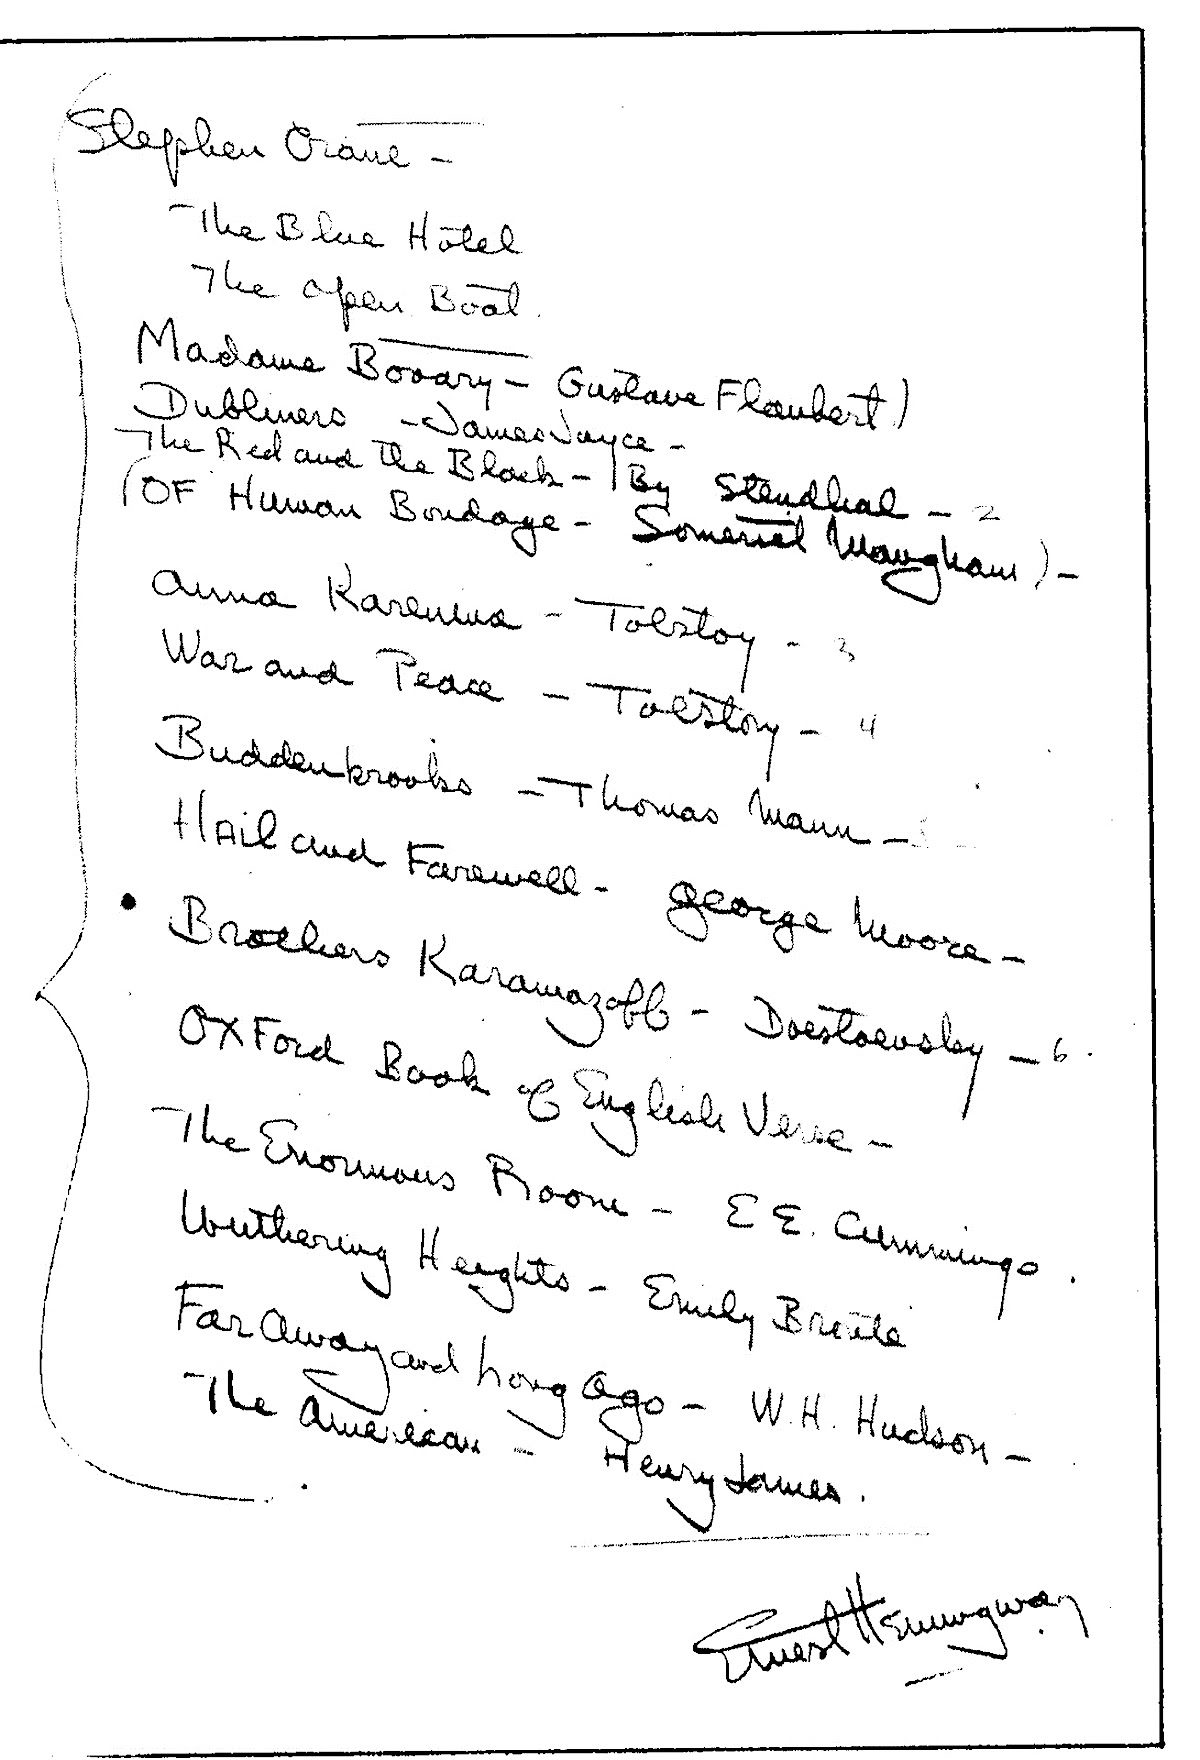 Stephen Crane -
The Blue Hotel
The Open Boat.
Madame Bovary - Gustave Flaubert)
Dubliners - James Joyce -
The Red and the Black - By Stendhal - 2
(OF Human Bondage - Somerset Maugham) -
Anna Karenina - Tolstoy - 3
War and Peace - Tolstoy - 4
Buddenbrooks - Thomas Mann - 5
HAil and Farewell - George Moore -
Brothers Karamazoff - Doestoevsky - 6.
OXFord Book of English Verse -
The Enormous Room - E E. Cummings.
Wuthering Heights - Emily Bronte
Far Away and Long Ago - W.H. Hudson -
The American - Henry James.
Ernest Hemingway